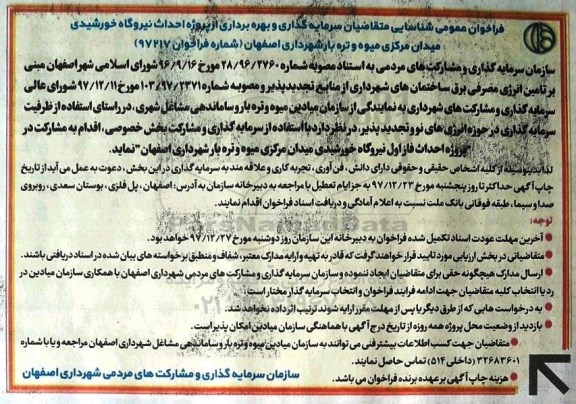 فراخوان عمومی شناسایی متقاضیان سرمایه گذاری و بهره برداری از پروژه احداث نیروگاه خورشیدی
میدان مرکزی میوه و تره بار شهرداری اصفهان (شماره فراخوان ۹۷۲۱۷)
سازمان سرمایه گذاری و مشارکت های مردمی به استناد مصوبه شماره ۲۸/۹۶/۲۷۶۰ مورخ ۹۶/۹/۱۶ شورای اسلامی شهر اصفهان مبنی
بر تامین انرژی مصرفی برق ساختمان های شهرداری از منابع تجدیدپذیر و مصوبه شماره ۱۰۳/۹۷/۲۳۷۱ مورخ ۹۷/۱۲/۱۱ شورای عالی
سرمایه گذاری و مشارکت های شهرداری به نمایندگی از سازمان میادین میوه و تره بار و ساماندهی مشاغل شهری، در راستای استفاده از ظرفیت
سرمایه گذاری در حوزه انرژی های نو و تجدید پذیر، در نظر دارد با استفاده از سرمایه گذاری و مشارکت بخش خصوصی، اقدام به مشارکت در
"پروژه احداث فاز اول نیروگاه خورشیدی میدان مرکزی میوه و تره بار شهرداری اصفهان" نماید.
لذا بدینوسیله از کلیه اشخاص حقیقی و حقوقی دارای دانش، فن آوری، تجربه کاری و علاقه مند به سرمایه گذاری در این بخش، دعوت به عمل می آید از تاریخ
چاپ آگهی حداکثر تا روز پنجشنبه مورخ ۹۷/۱۲/۲۳ به جز ایام تعطیل با مراجعه به دبیرخانه سازمان به آدرس: اصفهان، پل فلزی، بوستان سعدی، روبروی
صدا و سیما، طبقه فوقانی بانک ملت نسبت به اعلام آمادگی و دریافت اسناد فراخوان اقدام نمایند.
توجه:
● آخرین مهلت عودت اسناد تکمیل شده فراخوان به دبیرخانه این سازمان روز دوشنبه مورخ ۹۷/۱۲/۲۷ خواهد بود.
● متقاضیانی در بخش ارزیابی مورد تایید قرار خواهند گرفت که قادر به تهیه و ارایه مدارک معتبر، شفاف و منطبق بر خواسته های بیان شده در اسناد دریافتی باشند.
● ارسال مدارک هیچگونه حقی برای متقاضیان ایجاد ننموده و سازمان سرمایه گذاری و مشارکت های مردمی شهرداری اصفهان با همکاری سازمان میادین در
رد یا انتخاب کلیه متقاضیان جهت ادامه فرایند فراخوان و انتخاب سرمایه گذار مختار است.
● به درخواست هایی که از طرق دیگر یا پس از مهلت مقرر ارایه شوند ترتیب اثر داده نخواهد شد.
● بازدید از وضعیت محل پروژه همه روزه از تاریخ درج آگهی با هماهنگی سازمان میادین امکان پذیر است.
● متقاضیان جهت کسب اطلاعات بیشتر فنی می توانند به سازمان میادین میوه و تره بار و ساماندهی مشاغل شهرداری اصفهان مراجعه و یا با شماره
۳۲۶۸۳۶۰۱ (داخلی ۵۱۴) تماس حاصل نمایند.
● هزینه چاپ آگهی بر عهده برنده فراخوان می باشد.
سازمان سرمایه گذاری و مشارکت های مردمی شهرداری اصفهان